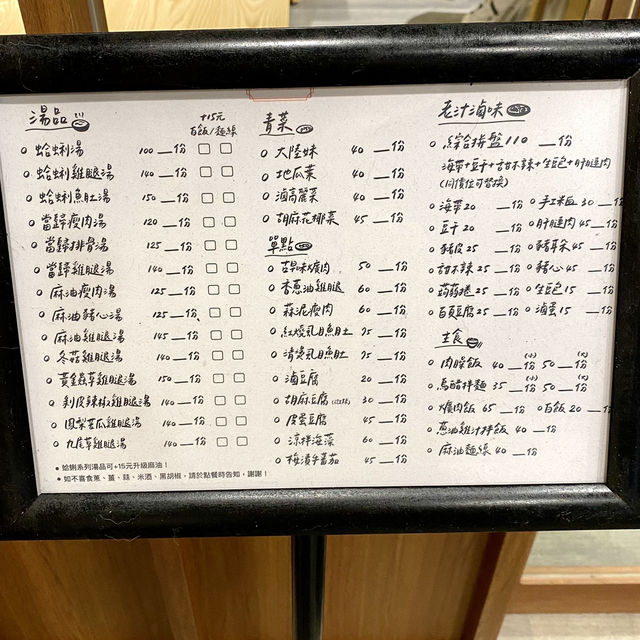 湯品
+15元
白飯/麵線
蛤蜊湯 100 __份 □ □
蛤蜊雞腿湯 140 __份 □ □
蛤蜊魚肚湯 150 __份 □ □
當歸瘦肉湯 120 __份 □ □
當歸排骨湯 125 __份 □ □
當歸雞腿湯 140 __份 □ □
麻油瘦肉湯 125 __份 □ □
麻油豬心湯 125 __份 □ □
麻油雞腿湯 145 __份 □ □
冬菇雞腿湯 140 __份 □ □
黃金蟲草雞腿湯 150 __份 □ □
剝皮辣椒雞腿湯 140 __份 □ □
鳳梨苦瓜雞腿湯 140 __份 □ □
九尾草雞腿湯 140 __份 □ □
• 蛤蜊系列湯品可+15元升級麻油！
• 如不喜食蔥、薑、蒜、米酒、黑胡椒，請於點餐時告知，謝謝！
青菜
大陸妹 40 __份
地瓜葉 40 __份
滷高麗菜 40 __份
胡麻花椰菜 45 __份
單點
古早味爌肉 50 __份
香蔥油雞腿 60 __份
蒜泥瘦肉 60 __份
紅燒虱目魚肚 75 __份
清燒虱目魚肚 75 __份
滷豆腐 20 __份
胡麻豆腐 30 __份
皮蛋豆腐 45 __份
涼拌海藻 60 __份
梅漬番茄 45 __份
老汁滷味
綜合拼盤 110 __份
海帶+豆干+甜不辣+生豆包+肝腱肉
(同價位可替換)
海帶 20 __份 手工米血 30 __份
豆干 20 __份 肝腱肉 45 __份
豬皮 25 __份 豬耳朵 45 __份
甜不辣 25 __份 豬心 45 __份
蒟蒻捲 25 __份 生豆包 15 __份
百頁豆腐 25 __份 滷蛋 15 __份
主食
肉燥飯 40 __份(小) 50 __份(大)
烏醋拌麵 35 __份(小) 50 __份(大)
爌肉飯 65 __份 白飯 20 __份
蔥油雞汁拌飯 40 __份
麻油麵線 40 __份